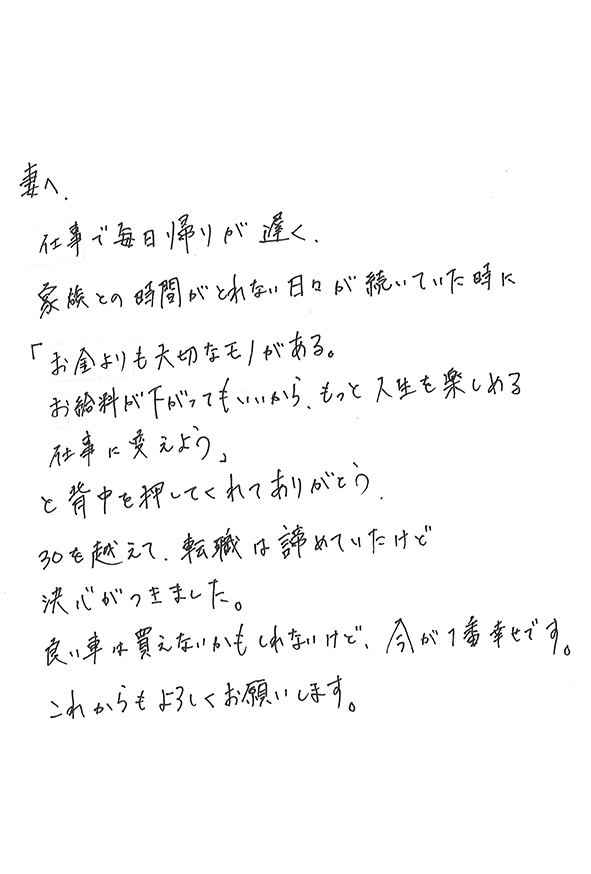 妻へ.
仕事で毎日帰りが遅く、
家族との時間がとれない日々が続いていた時に
「お金よりも大切なモノがある。
お給料が下がってもいいから、もっと人生を楽しめる
仕事に変えよう」
と背中を押してくれてありがとう.
30を越えて、転職は諦めていたけど
決心がつきました。
良い車は買えないかもしれないけど、今が1番幸せです。
これからもよろしくお願いします。